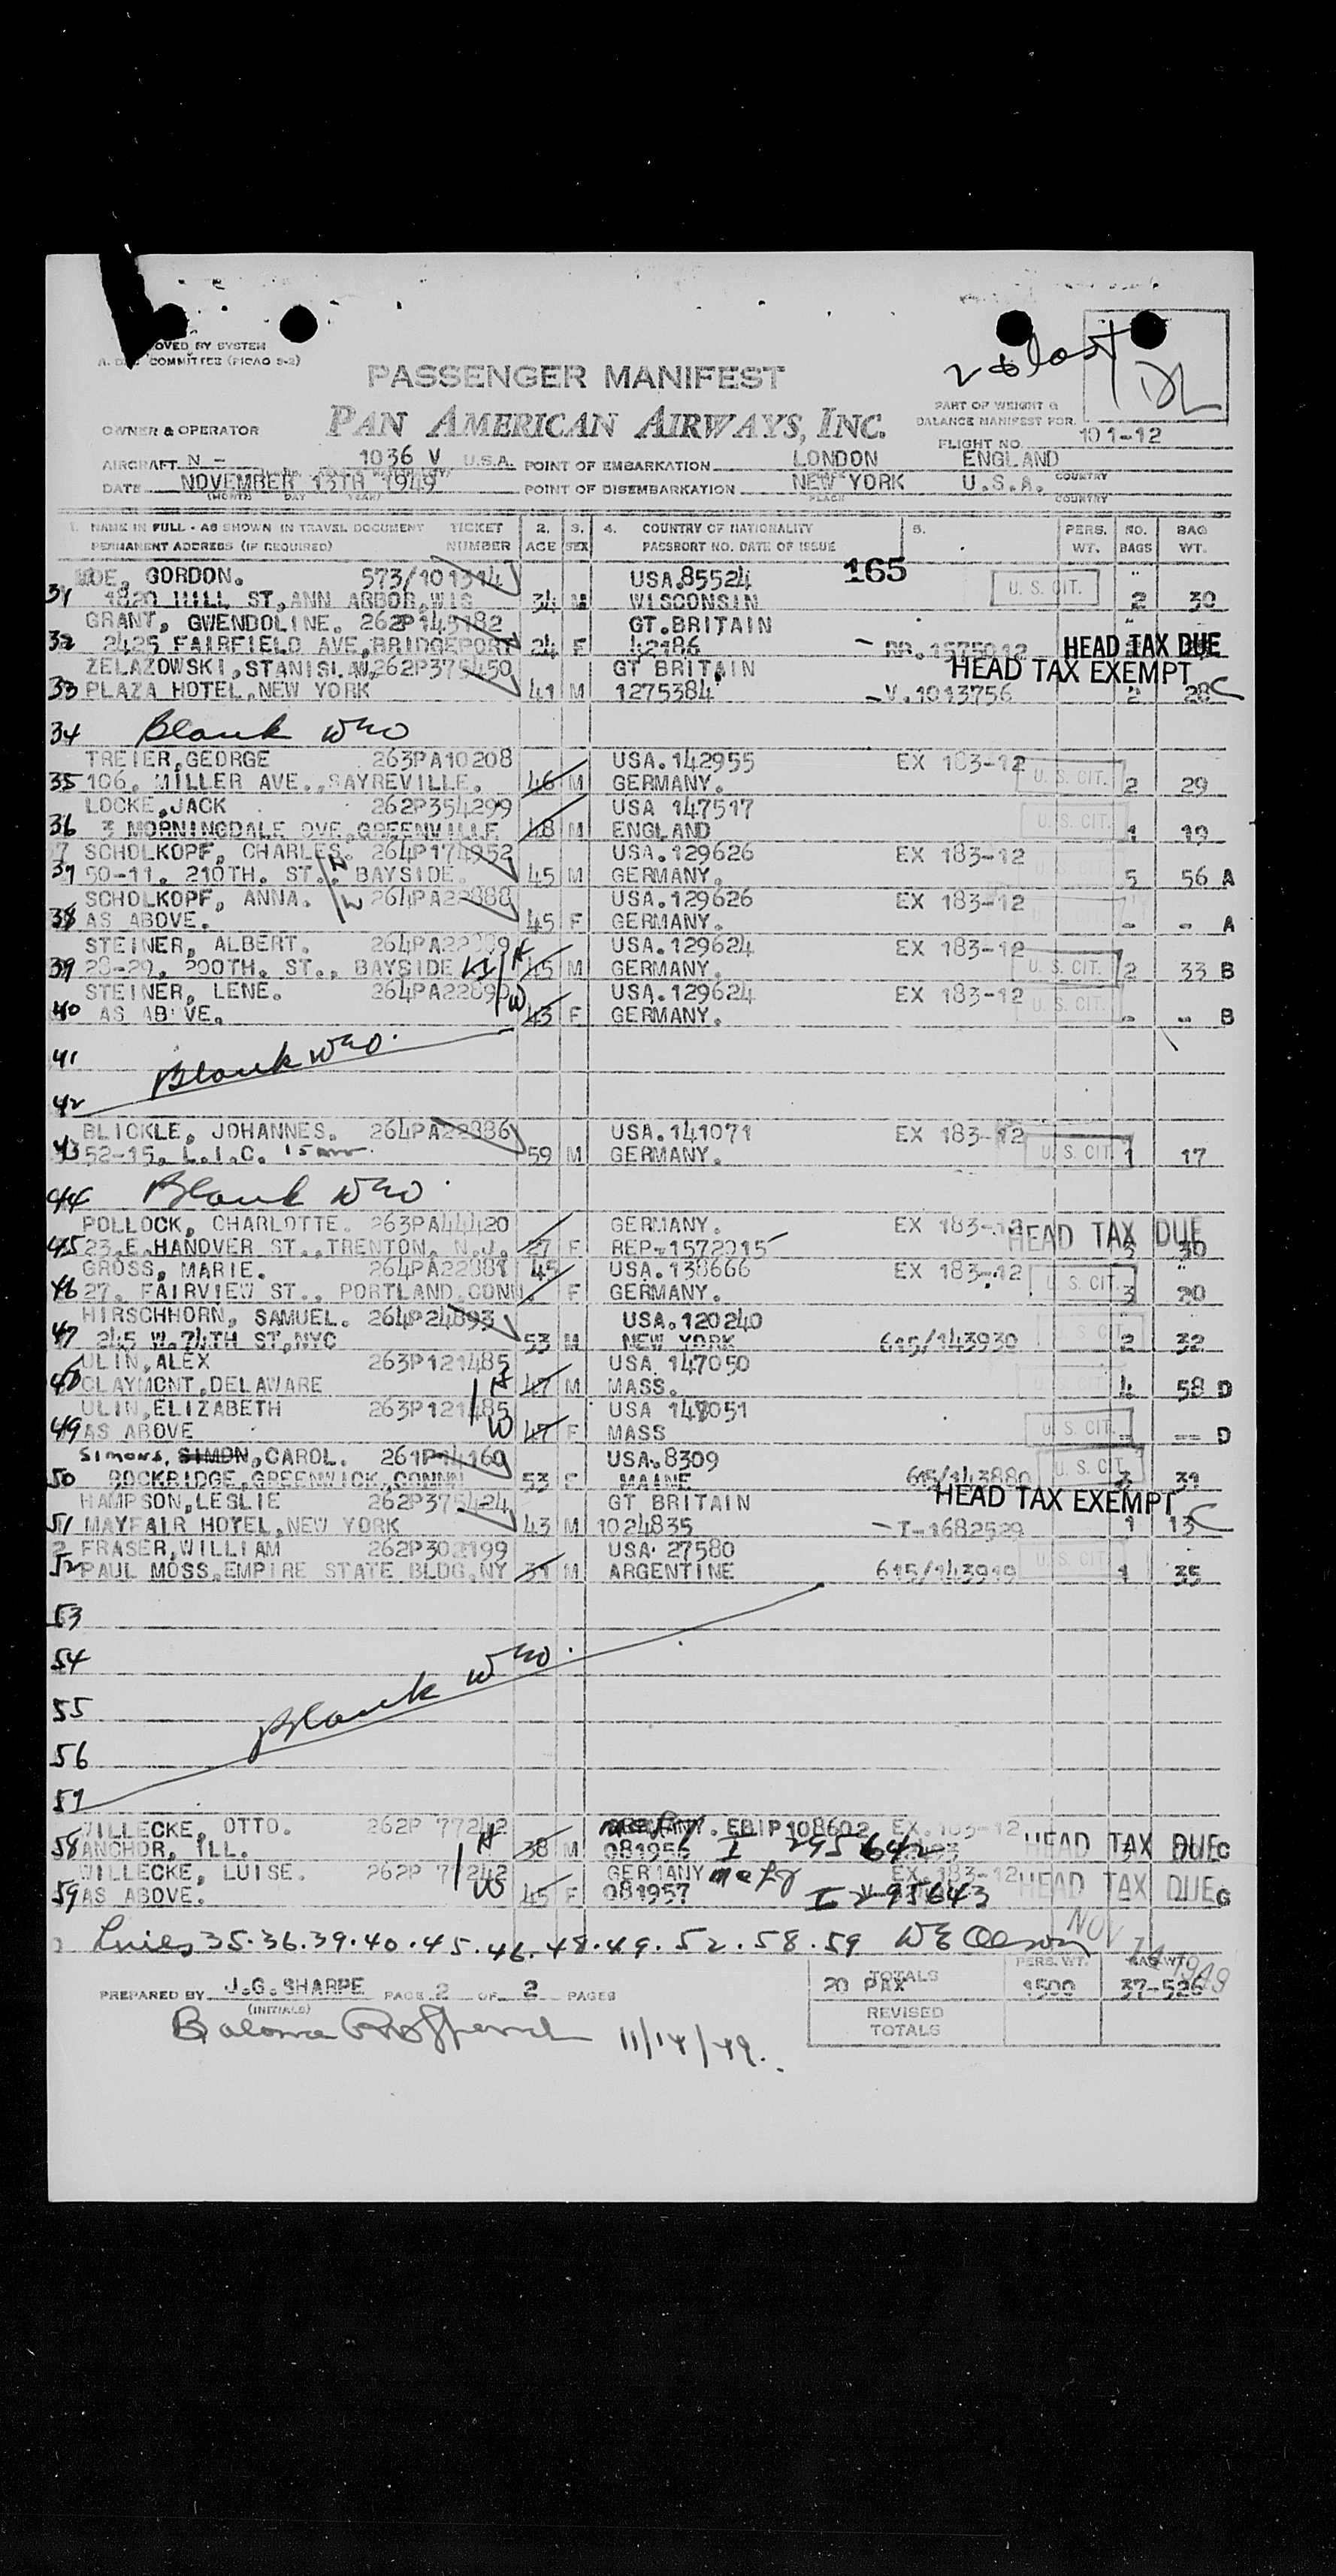 OVED BY SYSTEM
COMMITTEE (PICAO S-2)
PASSENGER MANIFEST
PAN AMERICAN AIRWAYS, INC.
OWNER & OPERATOR
PART OF WEIGHT &
BALANCE MANIFEST FOR
FLIGHT NO. 101-12
AIRCRAFT N - 1036 V U.S.A. POINT OF EMBARKATION LONDON ENGLAND COUNTRY
DATE NOVEMBER 13TH 1949 POINT OF DISEMBARKATION NEW YORK U.S.A. COUNTRY
(MONTH) DAY (YEAR) PLACE
1. NAME IN FULL - AS SHOWN IN TRAVEL DOCUMENT TICKET 2. 3. 4. COUNTRY OF NATIONALITY 5. PERS. NO. BAG
PERMANENT ADDRESS (IF REQUIRED) NUMBER AGE SEX PASSPORT NO. DATE OF ISSUE WT. BAGS WT.
165
GORDON. 573/101314 USA.85524 U. S. CIT.
31 1820 HILL ST,ANN ARBOR,WIS 34 M WISCONSIN 2 30
GRANT, GWENDOLINE. 262P145182 GT.BRITAIN
32 2425 FAIRFIELD AVE,BRIDGEPORT 24 F 42186 HEAD TAX DUE
ZELAZOWSKI,STANISLAW.262P375450 GT BRITAIN HEAD TAX EXEMPT
33 PLAZA HOTEL,NEW YORK 41 M 1275384 V.1013756 2 28 C
34 Blank
TREIER,GEORGE 263PA10208 USA.142955 EX 183-12 U. S. CIT.
35 106. MILLER AVE.,SAYREVILLE. 46 M GERMANY. 2 29
LOCKE,JACK 262P354299 USA 147517 U. S. CIT.
36 3 MORNINGDALE OVE,GREENVILLE 48 M ENGLAND 1 19
SCHOLKOPF, CHARLES. 264P174952 USA.129626 EX 183-12
37 50-11. 210TH. ST., BAYSIDE. H 45 M GERMANY. 5 56 A
SCHOLKOPF, ANNA. W 264PA22888 USA.129626 EX 183-12
38 AS ABOVE. 45 F GERMANY. - - A
STEINER, ALBERT. USA.129624 EX 183-12
39 28-29, 200TH. ST., BAYSIDE LI H 45 M GERMANY. U. S. CIT. 2 33 B
STEINER, LENE. 264PA22890 USA.129624 EX 183-12
40 AS ABOVE. W 43 F GERMANY. U. S. CIT. - - B
41
Blank
42
BLICKLE, JOHANNES. 264PA22886 USA.141071 EX 183-12
43 52-15, L.I.C. 59 M GERMANY. U. S. CIT. 1 17
44 Blank
POLLOCK, CHARLOTTE. 263PA44420 GERMANY. EX 183-12 HEAD TAX DUE
45 23.E.HANOVER ST.,TRENTON. N.J. 27 F REP-1572015 30
GROSS, MARIE. 264PA22887 45 USA.138666 EX 183-12
46 27, FAIRVIEW ST., PORTLAND,CONN. F GERMANY. U. S. CIT. 3 20
HIRSCHHORN, SAMUEL. 264P24893 USA.120240
47 245 W.74TH ST,NYC 53 M NEW YORK 615/143930 2 32
ULIN,ALEX 263P121485 USA 147050
48 CLAYMONT,DELAWARE H 47 M MASS. 4 58 D
ULIN,ELIZABETH 263P121485 USA 147051
49 AS ABOVE W 47 F MASS U. S. CIT. - -- D
Simons, SIMON,CAROL. 261P14160 USA.8309
50 ROCKRIDGE,GREENWICK,CONNN 53 F MAINE 615/143880 U. S. CIT. 3 31
HAMPSON,LESLIE 262P375424 GT BRITAIN HEAD TAX EXEMPT
51 MAYFAIR HOTEL,NEW YORK 43 M 1024835 I-1682529 1 13 C
FRASER,WILLIAM 262P302199 USA 27580
52 PAUL MOSS,EMPIRE STATE BLDG,NY 31 M ARGENTINE 615/143919 U. S. CIT. 1 35
53
54
55 Blank
56
57
WILLECKE, OTTO. 262P 77242 EBIP108602 EX.183-12
58 ANCHOR, ILL. H 38 M 081956 I 295642 HEAD TAX DUE G
WILLECKE, LUISE. 262P 77242 GERMANY EX.183-12
59 AS ABOVE. W 45 F 081957 I 295643 HEAD TAX DUE G
Lines 35.36.39.40.45.46.48.49.52.58.59 W E Olson NOV 14 1949
PREPARED BY J.G.SHARPE PAGE 2 OF 2 PAGES 20 PAX TOTALS PERS. WT. 1500 BAG WT. 37-526
(INITIALS) REVISED
TOTALS
Balance 11/14/49.